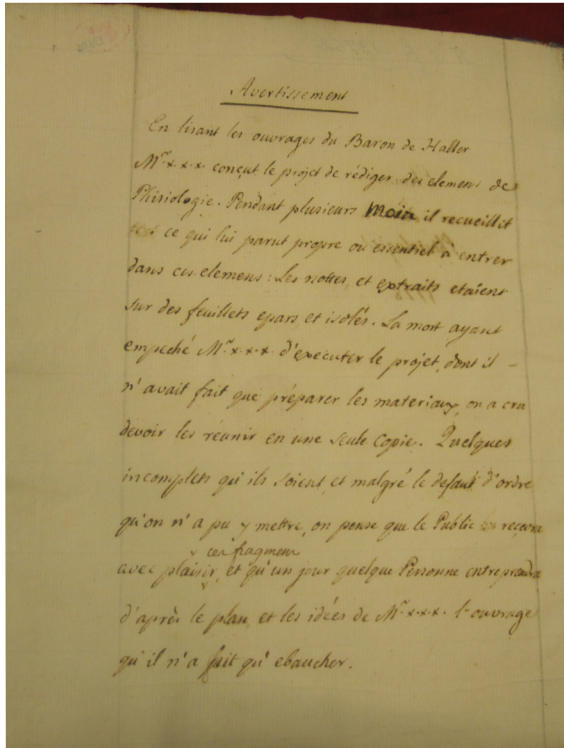 Avertissement
En lisant les ouvrages du Baron de Haller
Mr. x.x.x conçut le projet de rédiger des elemens de
Phisiologie. Pendant plusieurs Mois il recueillit
ce qui lui parut propre ou essentiel à entrer
dans ces elemens: Les nottes, et extraits etaient
sur des feuillets epars et isolés. La mort ayant
empeché Mr. x.x.x. d'executer le projet, dont il –
n'avait fait que préparer les materiaux, on a cru
devoir les réunir en une seule Copie. Quelques
incomplets qu'ils soient, et malgré le defaut d'ordre
qu'on n'a pu y mettre, on pense que le Public recevra
ces fragmens
avec plaisir, et qu'un jour quelque Personne entreprendra
d'après le plan, et les idées de Mr. x.x.x. l'ouvrage
qu'il n'a fait qu'ebaucher.